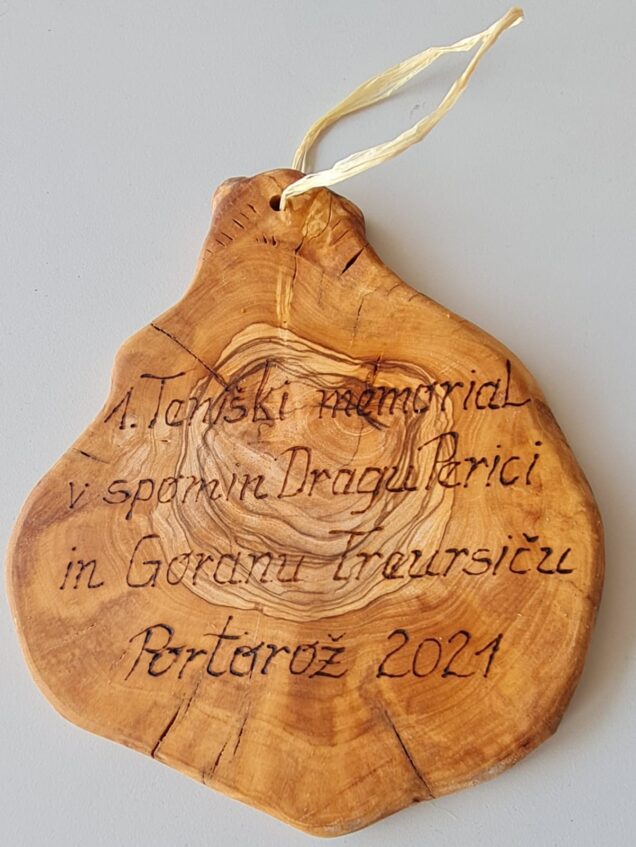 1. Teniški memorial
v spomin Dragu Perici
in Goranu Traursiču
Portorož 2021